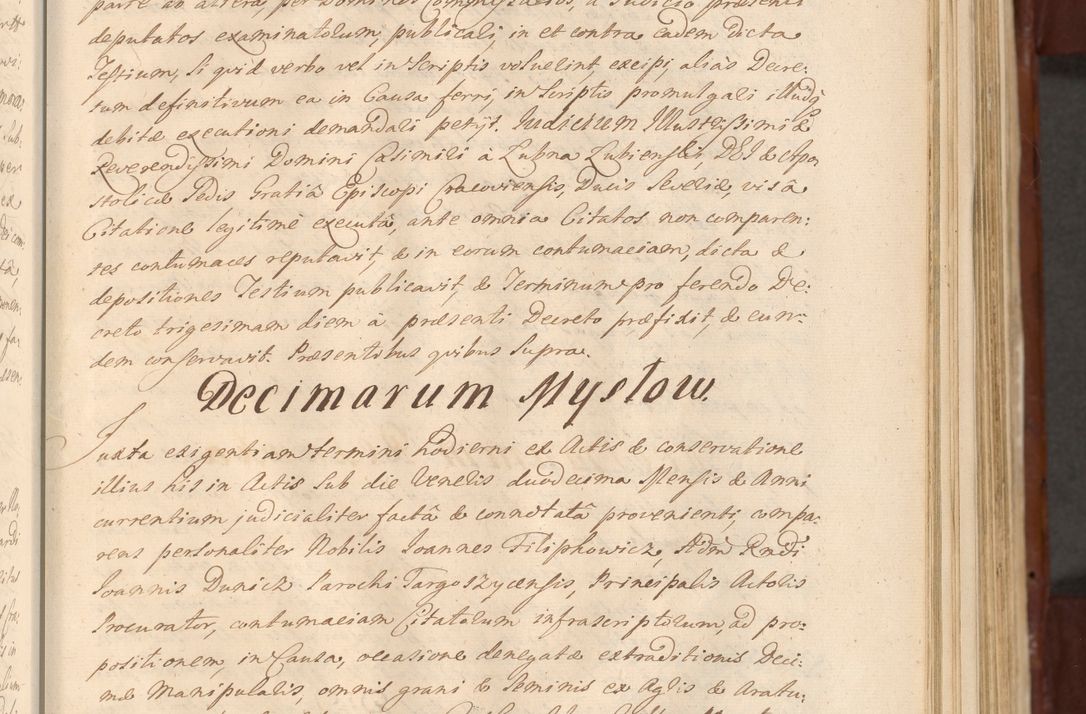 parte ab altera, per Dominos Commissarios, a Judicio præsenti
deputatos examinatorum, publicari, in et contra eadem dicta
Testium, si quid verbo vel in Scriptis voluerint, excipi, alias Decre:
tum definitivum ea in Causa ferri, in Scriptis promulgari illudq
debitæ executioni demandari petijt. Judicium Illustrissimi &
Reverendissimi Domini Casimiri à Łubna Łubienski, DEI & Apo
stolicæ Sedis Gratiâ Episcopi Cracoviensis, Ducis Severiæ, visâ
Citatione legitimè executâ, ante omnia Citatos non comparen:
tes contumaces reputavit, & in eorum contumaciam, dicta &
depositiones Testium publicavit, & Terminum pro ferendo De:
creto trigesimam diem à præsenti Decreto præfixit, & eun:
dem conservavit. Præsentibus quibus supra.
Decimarum Mysłow.
Juxta exigentiam termini hodierni ex Actis & conservatione
illius his in Actis sub die Veneris duodecima Mensis & Anni
currentium judicialiter factâ & connotatâ provenienti, compa:
rens personaliter Nobilis Joannes Filiphowicz, Admi Rndi
Joannis Dunicz Parochi Targoszycensis, Principalis Actoris
Procurator, contumaciam Citatorum infrascriptorum, ad pro:
positionem, in Causa, occasione denegatæ extraditionis Deci:
mæ Manipularis, omnis grani & Seminis ex Agris & Aratu: